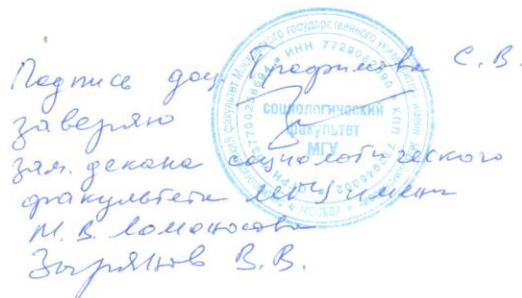 Подпись доц. Трофимова С.В.
заверяю
зам. декана социологического
факультета МГУ имени
М.В. Ломоносова
Зырянов В.В.
социологический
факультет
МГУ